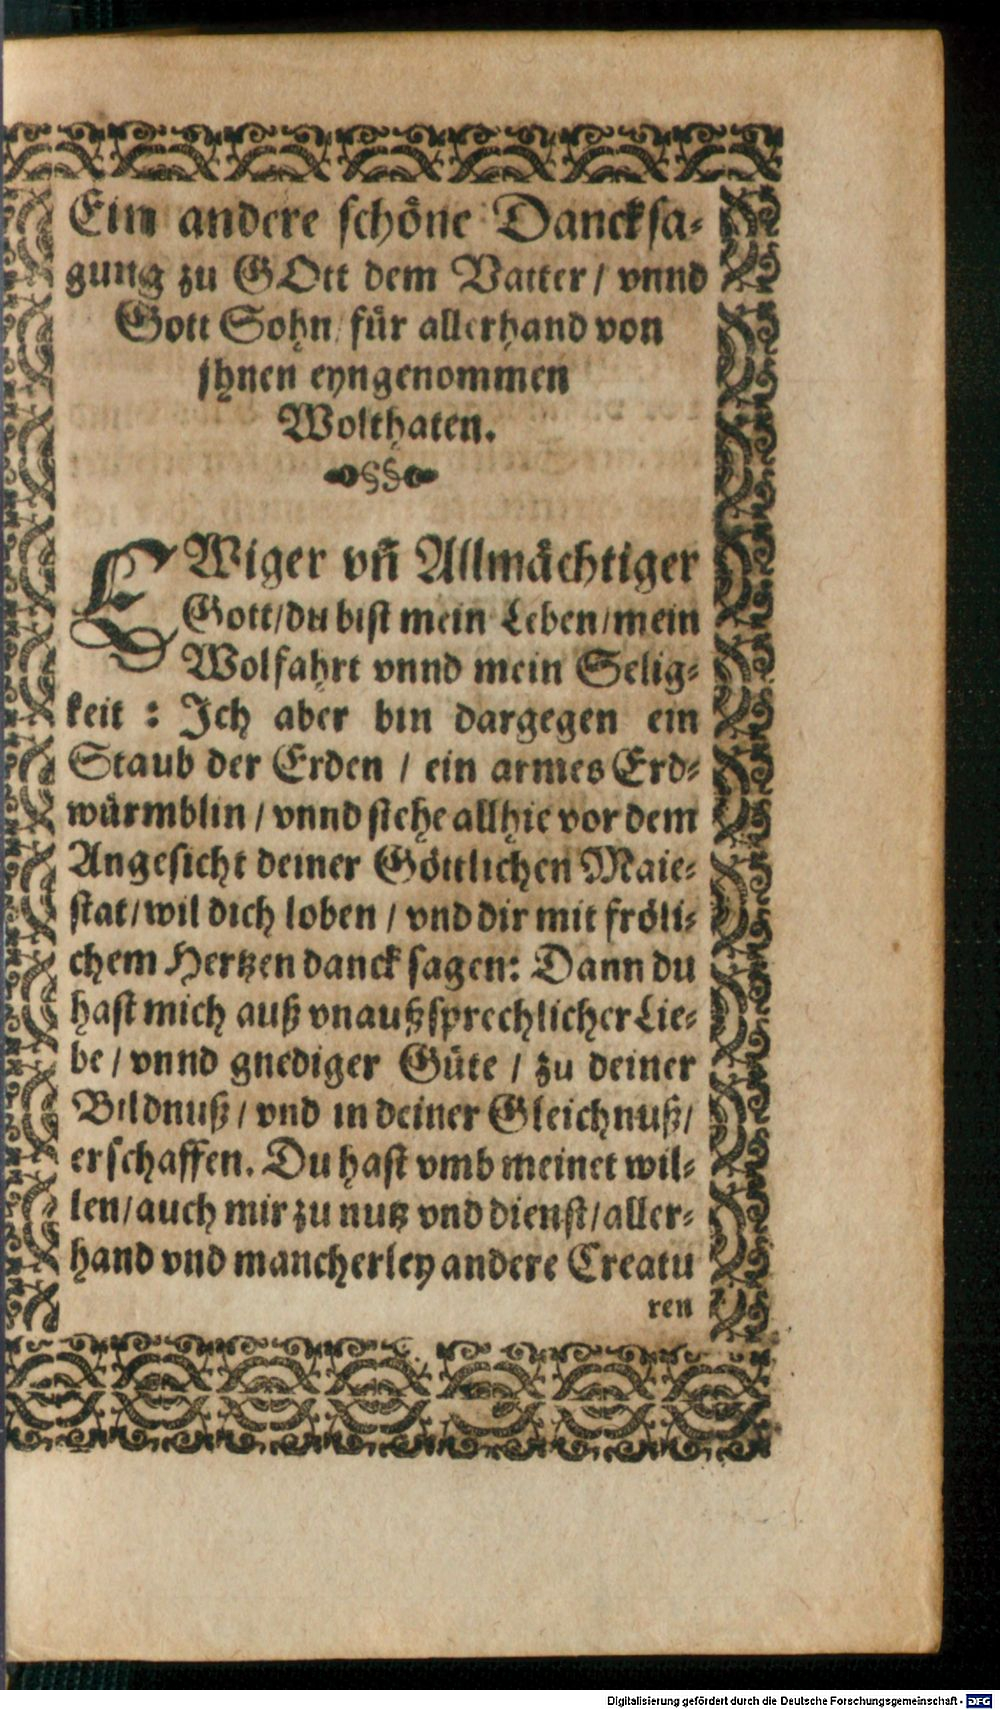 Ein andere schöne Dancksa-
gung zu GOtt dem Vatter / vnnd
Gott Sohn / für allerhand von
jhnen eyngenommen
Wolthaten.
EWiger vñ Allmächtiger
Gott / du bist mein Leben / mein
Wolfahrt vnnd mein Selig-
keit : Ich aber bin dargegen ein
Staub der Erden / ein armes Erd-
würmblin / vnnd stehe allhie vor dem
Angesicht deiner Göttlichen Maie-
stat / wil dich loben / vnd dir mit fröli-
chem Hertzen danck sagen: Dann du
hast mich auß vnaußsprechlicher Lie-
be / vnnd gnediger Güte / zu deiner
Bildnuß / vnd in deiner Gleichnuß /
erschaffen. Du hast vmb meinet wil-
len / auch mir zu nutz vnd dienst / aller-
hand vnd mancherley andere Creatu
ren
Digitalisierung gefördert durch die Deutsche Forschungsgemeinschaft - DFG